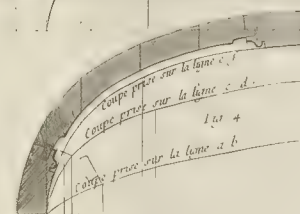 Coupe prise sur la ligne e f
Coupe prise sur la ligne c d.
Fig 4
Coupe prise sur la ligne a b